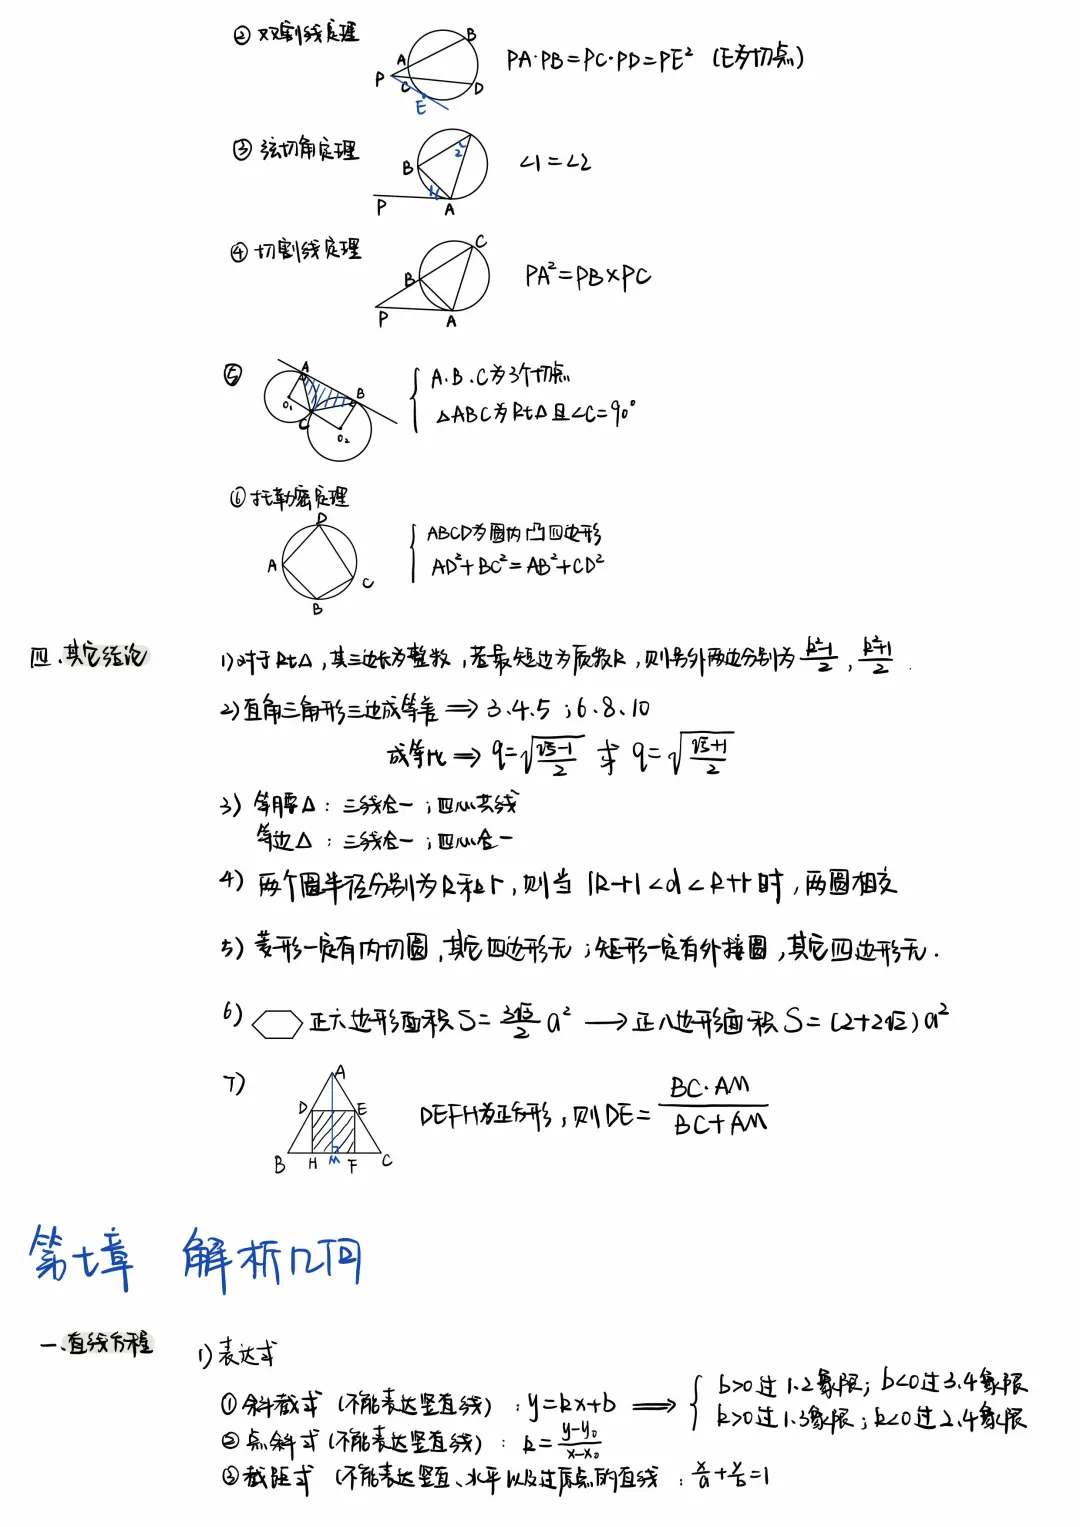 ② 双割线定理
B
A
P
C
D
E
PA·PB=PC·PD=PE² (E为切点)
③ 弦切角定理
2
B
1
P
A
∠1=∠2
④ 切割线定理
C
B
P
A
PA²=PB×PC
⑤
A
B
O₁
C
O₂
A.B.C为3个切点
△ABC为Rt△且∠C=90°
⑥ 托勒密定理
D
A
C
B
ABCD为圆内凸四边形
AD²+BC²=AB²+CD²
四、其它结论
1) 对于Rt△,其三边长为整数,若最短边为质数k,则另外两边分别为 (k²-1)/2 , (k²+1)/2 .
2) 直角三角形三边成等差 ⟹ 3.4.5 ; 6.8.10
成等比 ⟹ q=√((√5-1)/2) 或 q=√((√5+1)/2)
3) 等腰△:三线合一;四心共线
等边△:三线合一;四心合一
4) 两个圆半径分别为R和r,则当 |R-r|<d<R+r时,两圆相交
5) 菱形一定有内切圆,其它四边形无;矩形一定有外接圆,其它四边形无.
6) 正六边形面积S=(3√3/2)a² ⟶ 正八边形面积S=(2+2√2)a²
7)
A
D
E
B
H
M
F
C
DEFH为正方形,则DE=(BC·AM)/(BC+AM)
第七章 解析几何
一、直线方程
1) 表达式
① 斜截式 (不能表达竖直线) : y=kx+b ⟹
b>0过1.2象限; b<0过3.4象限
k>0过1.3象限; k<0过2.4象限
② 点斜式 (不能表达竖直线) : k=(y-y₀)/(x-x₀)
③ 截距式 (不能表达竖直、水平以及过原点的直线 : x/a+y/b=1